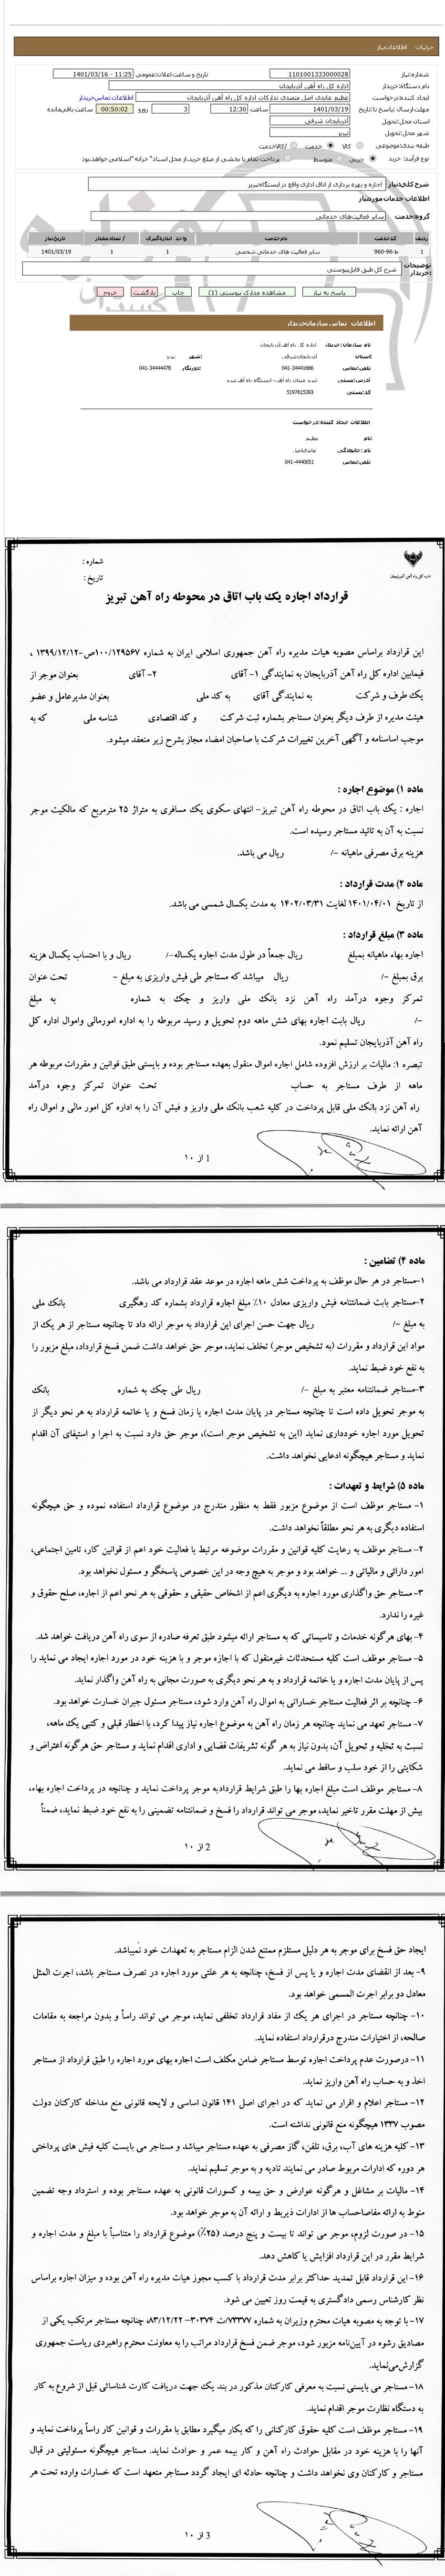 جزئیات اطلاعات نیاز
شماره نیاز: 1101001333000028
تاریخ و ساعت اعلان عمومی: 1401/03/16 - 11:25
نام دستگاه خریدار: اداره کل راه آهن آذربایجان
ایجاد کننده درخواست: عظیم عابدی اصل متصدی تدارکات اداره کل راه آهن آذربایجان اطلاعات تماس خریدار
مهلت ارسال پاسخ تا: تاریخ 1401/03/19 ساعت 12:30 3 روز و 00:50:02 ساعت باقی مانده
استان محل تحویل: آذربایجان شرقی
شهر محل تحویل: تبریز
طبقه بندی موضوعی: کالا خدمت کالا/خدمت
نوع فرآیند خرید: جزیی متوسط پرداخت تمام یا بخشی از مبلغ خرید،از محل اسناد "خزانه اسلامی خواهد بود.
شرح کلی نیاز: اجاره و بهره برداری از اتاق اداری واقع در ایستگاه تبریز
اطلاعات خدمات مورد نیاز
گروه خدمت: سایر فعالیت‌های خدماتی
ردیف کد خدمت نام خدمت واحد اندازه گیری تعداد / مقدار تاریخ نیاز
1 ط-96-960 سایر فعالیت های خدماتی شخصی 1 1 1401/03/19
توضیحات خریدار: شرح کل طبق فایل پیوستی
پاسخ به نیاز مشاهده مدارک پیوستی (1) چاپ بازگشت خروج
اطلاعات تماس سازمان خریدار
نام سازمان خریدار: اداره کل راه آهن آذربایجان
استان: آذربایجان شرقی شهر: تبریز
تلفن تماس: 041-34441666 دورنگار: 041-34444478
آدرس پستی: تبریز میدان راه آهن - ایستگاه راه آهن تبریز
کد پستی: 5197615393
اطلاعات ایجاد کننده درخواست
نام: عظیم
نام خانوادگی: عابدی اصل
تلفن تماس: 041-4440051
شماره :
تاریخ :
اداره کل راه آهن آذربایجان
قرارداد اجاره یک باب اتاق در محوطه راه آهن تبریز
این قرارداد براساس مصوبه هیات مدیره راه آهن جمهوری اسلامی ایران به شماره ۱۰۰/۱۲۹۵۶۷/ص-۱۳۹۹/۱۲/۱۲ ،
فیمابین اداره کل راه آهن آذربایجان به نمایندگی ۱- آقای ۲- آقای بعنوان موجر از
یک طرف و شرکت به نمایندگی آقای به کد ملی بعنوان مدیرعامل و عضو
هیئت مدیره از طرف دیگر بعنوان مستاجر بشماره ثبت شرکت و کد اقتصادی شناسه ملی که به
موجب اساسنامه و آگهی آخرین تغییرات شرکت با صاحبان امضاء مجاز بشرح زیر منعقد میشود.
ماده ۱) موضوع اجاره :
اجاره : یک باب اتاق در محوطه راه آهن تبریز- انتهای سکوی یک مسافری به متراژ ۲۵ مترمربع که مالکیت موجر
نسبت به آن به تائید مستاجر رسیده است.
هزینه برق مصرفی ماهیانه -/ ریال می باشد.
ماده ۲) مدت قرارداد :
از تاریخ ۱۴۰۱/۰۴/۰۱ لغایت ۱۴۰۲/۰۳/۳۱ به مدت یکسال شمسی می باشد.
ماده ۳) مبلغ قرارداد :
اجاره بهاء ماهیانه بمبلغ ریال جمعاً در طول مدت اجاره یکساله-/ ریال و با احتساب یکسال هزینه
برق بمبلغ -/ ریال میباشد که مستاجر طی فیش واریزی به مبلغ - تحت عنوان
تمرکز وجوه درآمد راه آهن نزد بانک ملی واریز و چک به شماره به مبلغ
-/ ریال بابت اجاره بهای شش ماهه دوم تحویل و رسید مربوطه را به اداره امورمالی واموال اداره کل
راه آهن آذربایجان تسلیم نمود.
تبصره ۱: مالیات بر ارزش افزوده شامل اجاره اموال منقول بعهده مستاجر بوده و بایستی طبق قوانین و مقررات مربوطه هر
ماهه از طرف مستاجر به حساب تحت عنوان تمرکز وجوه درآمد
راه آهن نزد بانک ملی قابل پرداخت در کلیه شعب بانک ملی واریز و فیش آن را به اداره کل امور مالی و اموال راه
آهن ارائه نماید.
1 از ۱۰
ماده ۴) تضامین :
۱-مستاجر در هر حال موظف به پرداخت شش ماهه اجاره در موعد عقد قرارداد می باشد.
۲-مستاجر بابت ضمانتنامه فیش واریزی معادل ۱۰٪ مبلغ اجاره قرارداد بشماره کد رهگیری بانک ملی
به مبلغ -/ ریال جهت حسن اجرای این قرارداد به موجر ارائه داد تا چنانچه مستاجر از هر یک از
مواد این قرارداد و مقررات (به تشخیص موجر) تخلف نماید، موجر حق خواهد داشت ضمن فسخ قرارداد، مبلغ مزبور را
به نفع خود ضبط نماید.
۳-مستاجر ضمانتنامه معتبر به مبلغ -/ ریال طی چک به شماره بانک
به موجر تحویل داده است تا چنانچه مستاجر در پایان مدت اجاره یا زمان فسخ و یا خاتمه قرارداد به هر نحو دیگر از
تحویل مورد اجاره خودداری نماید (این به تشخیص موجر است)، موجر حق دارد نسبت به اجرا و استیفای آن اقدام
نماید و مستاجر هیچگونه ادعایی نخواهد داشت.
ماده ۵) شرایط و تعهدات :
۱- مستاجر موظف است از موضوع مزبور فقط به منظور مندرج در موضوع قرارداد استفاده نموده و حق هیچگونه
استفاده دیگری به هر نحو مطلقاً نخواهد داشت.
۲- مستاجر موظف به رعایت کلیه قوانین و مقررات موضوعه مرتبط با فعالیت خود اعم از قوانین کار، تامین اجتماعی،
امور دارائی و مالیاتی و ... خواهد بود و موجر به هیچ وجه در این خصوص پاسخگو و مسئول نخواهد بود.
۳- مستاجر حق واگذاری مورد اجاره به دیگری اعم از اشخاص حقیقی و حقوقی به هر نحو اعم از اجاره، صلح حقوق و
غیره را ندارد.
۴- بهای هرگونه خدمات و تاسیساتی که به مستاجر ارائه میشود طبق تعرفه صادره از سوی راه آهن دریافت خواهد شد.
۵- مستاجر موظف است کلیه مستحدثات غیرمنقول که با اجازه موجر و با هزینه خود در مورد اجاره ایجاد می نماید را
پس از پایان مدت اجاره و یا خاتمه قرارداد و به هر نحو دیگری به صورت مجانی به راه آهن واگذار نماید.
۶- چنانچه بر اثر فعالیت مستاجر خساراتی به اموال راه آهن وارد شود، مستاجر مسئول جبران خسارت خواهد بود.
۷- مستاجر تعهد می نماید چنانچه هر زمان راه آهن به موضوع اجاره نیاز پیدا کرد، با اخطار قبلی و کتبی یک ماهه،
نسبت به تخلیه و تحویل آن، بدون نیاز به هر گونه تشریفات قضایی و اداری اقدام نماید و مستاجر حق هرگونه اعتراض و
شکایتی را از خود سلب و ساقط می نماید.
۸- مستاجر موظف است مبلغ اجاره بها را طبق شرایط قراردادبه موجر پرداخت نماید و چنانچه در پرداخت اجاره بهاء،
بیش از مهلت مقرر تاخیر نماید، موجر می تواند قرارداد را فسخ و ضمانتنامه تضمینی را به نفع خود ضبط نماید، ضمناً
2 از ۱۰
ایجاد حق فسخ برای موجر به هر دلیل مستلزم ممتنع شدن الزام مستاجر به تعهدات خود نمیباشد.
۹- بعد از انقضای مدت اجاره و یا پس از فسخ، چنانچه به هر علتی مورد اجاره در تصرف مستاجر باشد، اجرت المثل
معادل دو برابر اجرت المسمی خواهد بود.
۱۰- چنانچه مستاجر در اجرای هر یک از مفاد قرارداد تخلفی نماید، موجر می تواند راساً و بدون مراجعه به مقامات
صالحه، از اختیارات مندرج درقرارداد استفاده نماید.
۱۱- درصورت عدم پرداخت اجاره توسط مستاجر ضامن مکلف است اجاره بهای مورد اجاره را طبق قرارداد از مستاجر
اخذ و به حساب راه آهن واریز نماید.
۱۲- مستاجر اعلام و اقرار می نماید که در اجرای اصل ۱۴۱ قانون اساسی و لایحه قانونی منع مداخله کارکنان دولت
مصوب ۱۳۳۷ هیچگونه منع قانونی نداشته است.
۱۳- کلیه هزینه های آب، برق، تلفن، گاز مصرفی به عهده مستاجر میباشد و مستاجر می بایست کلیه فیش های پرداختی
هر دوره که ادارات مربوط صادر می نمایند تادیه و به موجر تسلیم نماید.
۱۴- مالیات بر مشاغل و هرگونه عوارض و حق بیمه و کسورات قانونی به عهده مستاجر بوده و استرداد وجه تضمین
منوط به ارائه مفاصاحساب ها از ادارات ذیربط و ارائه آن به موجر خواهد بود.
۱۵- در صورت لزوم، موجر می تواند تا بیست و پنج درصد (۲۵٪) موضوع قرارداد را متناسباً با مبلغ و مدت اجاره و
شرایط مقرر در این قرارداد افزایش یا کاهش دهد.
۱۶- این قرارداد قابل تمدید حداکثر برابر مدت قرارداد با کسب مجوز هیات مدیره راه آهن بوده و میزان اجاره براساس
نظر کارشناس رسمی دادگستری به قیمت روز تعیین می شود.
۱۷- با توجه به مصوبه هیات محترم وزیران به شماره ۷۳۳۷۷/ت ۳۰۳۷۴-۸۳/۱۲/۲۲، چنانچه مستاجر مرتکب یکی از
مصادیق رشوه در آیین‌نامه مزبور شود، موجر ضمن فسخ قرارداد مراتب را به معاونت محترم راهبردی ریاست جمهوری
گزارش می‌نماید.
۱۸- مستاجر می بایستی نسبت به معرفی کارکنان مذکور در بند یک جهت دریافت کارت شناسائی قبل از شروع به کار
به دستگاه نظارت موجر اقدام نماید.
۱۹- مستاجر موظف است کلیه حقوق کارکنانی را که بکار میگیرد مطابق با مقررات و قوانین کار راساً پرداخت نماید و
آنها را با هزینه خود در مقابل حوادث راه آهن و کار بیمه عمر و حوادث نماید. مستاجر هیچگونه مسئولیتی در قبال
مستاجر و کارکنان وی نخواهد داشت و چنانچه حادثه ای ایجاد گردد مستاجر متعهد است که خسارات وارده تحت هر
3 از ۱۰